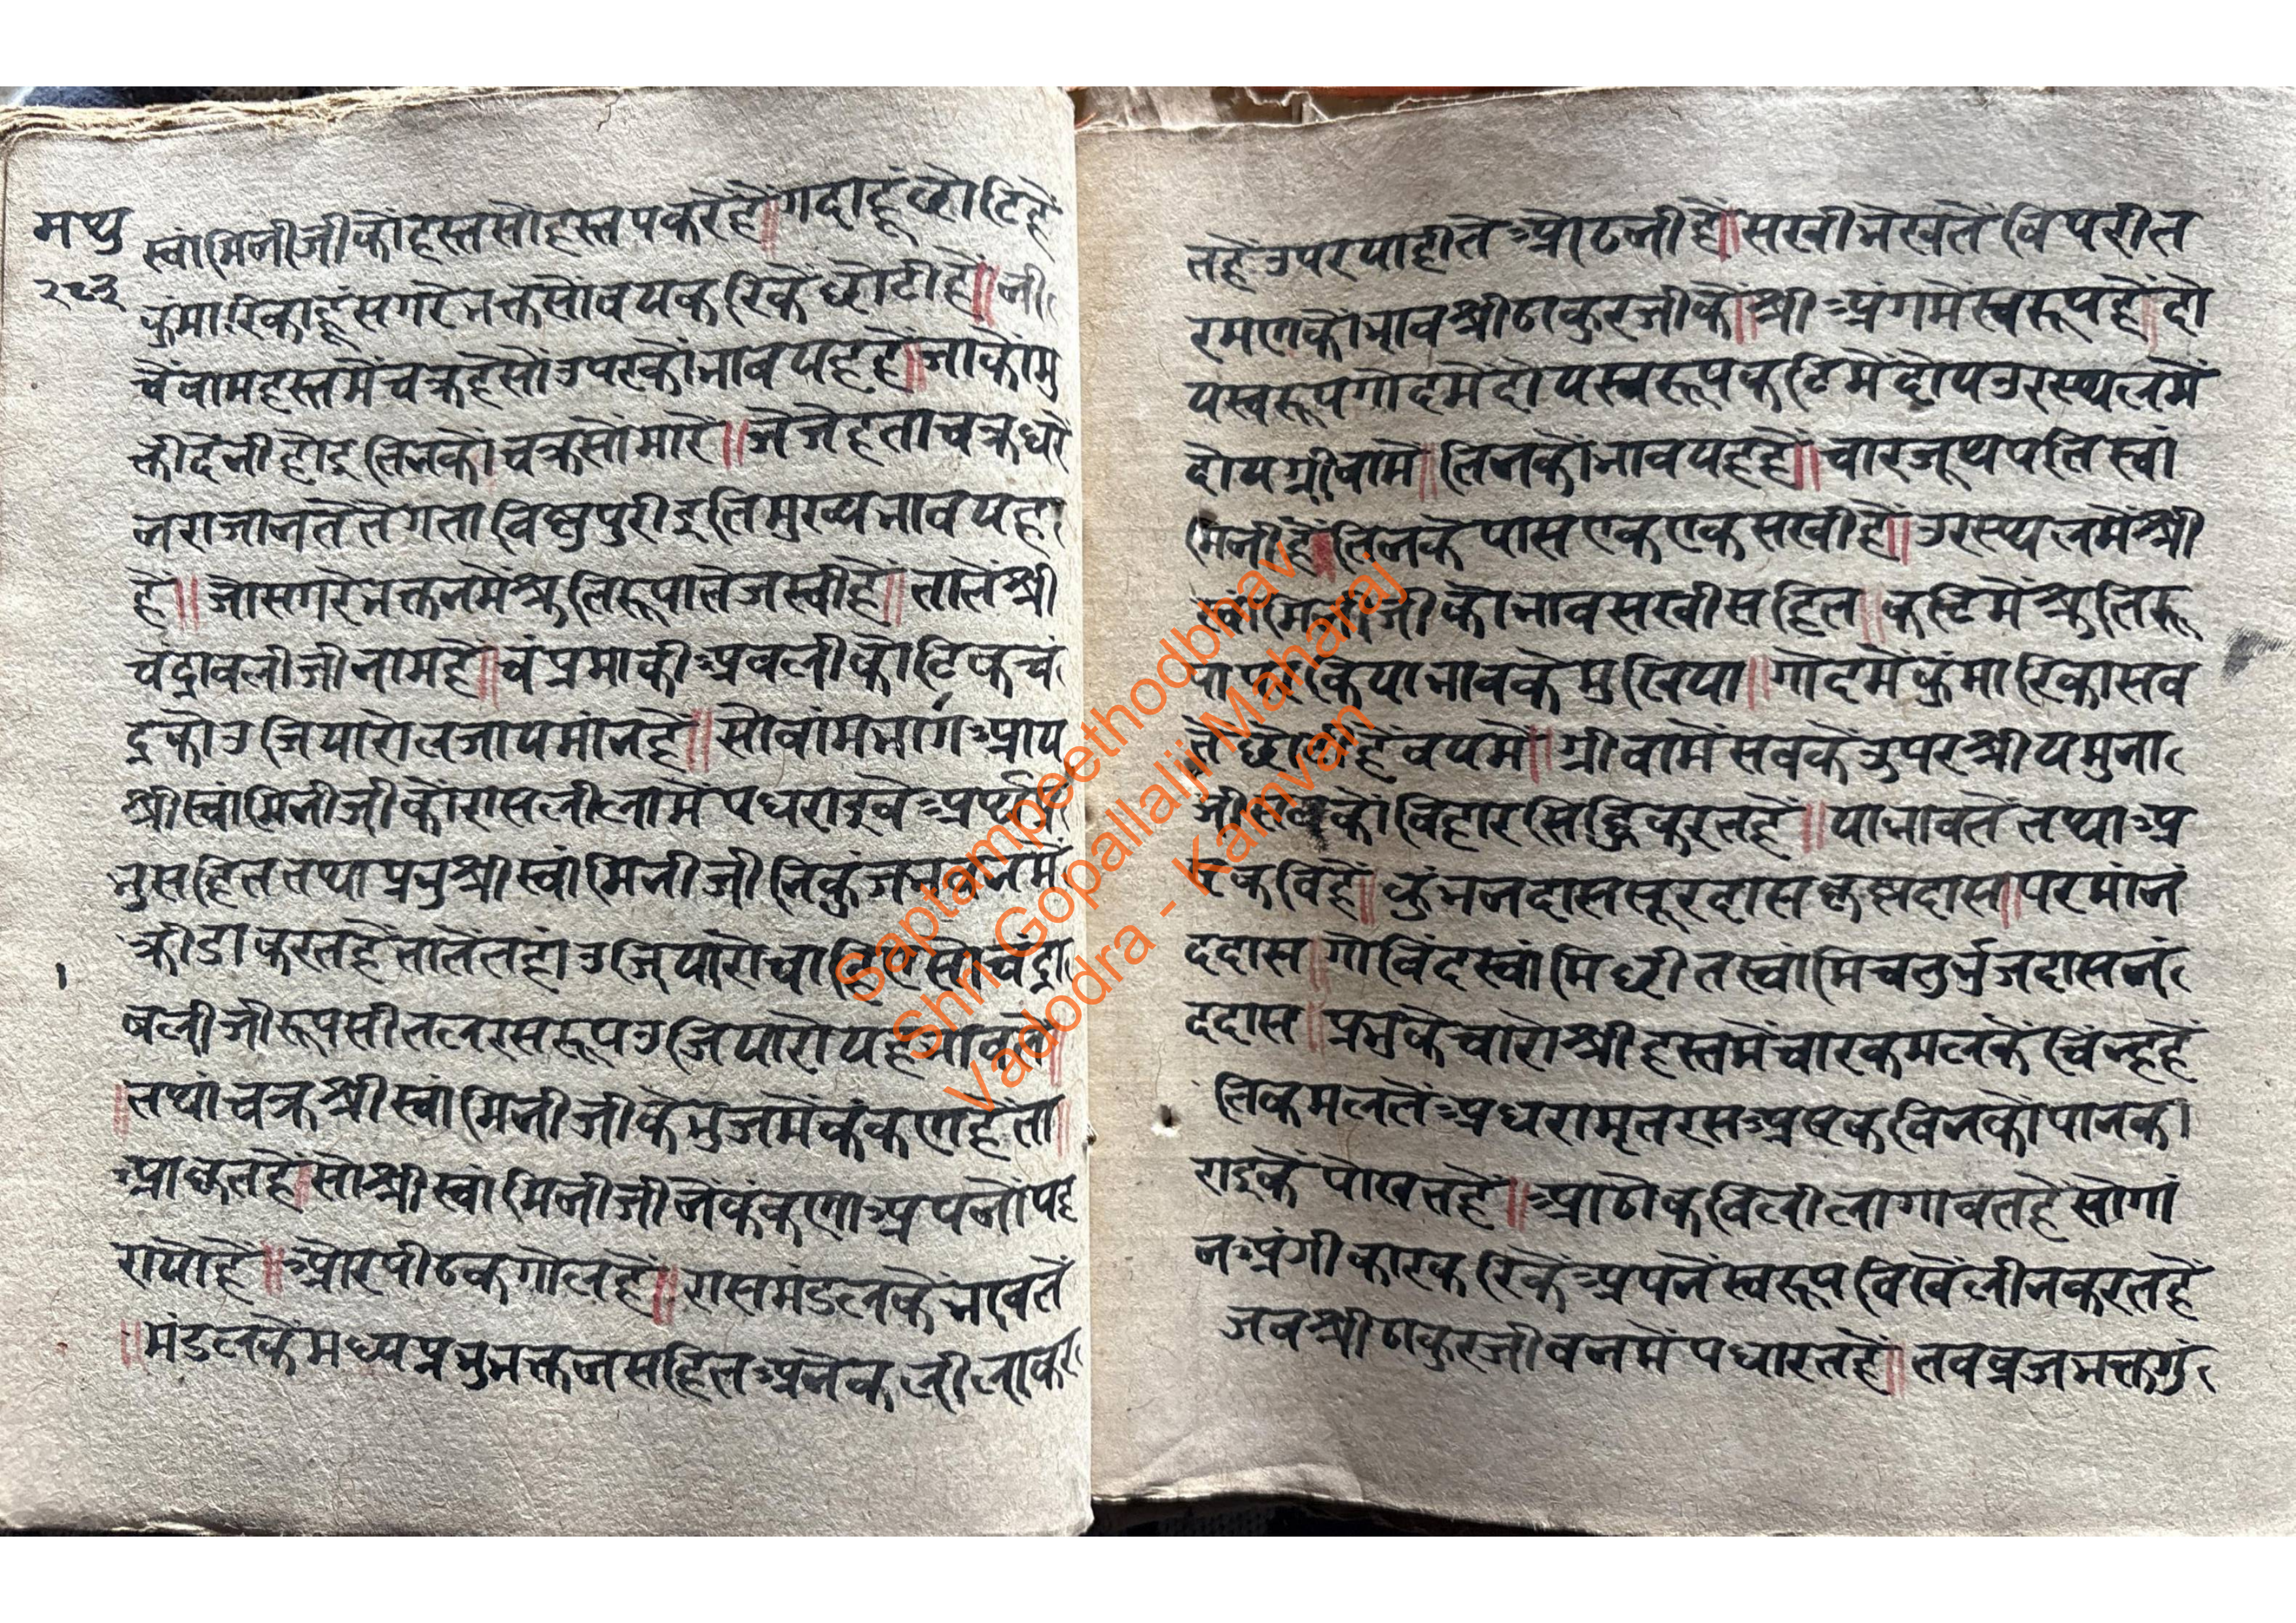 मथु
२८३
स्वांमिनीजीकौहस्तसौंहस्तपकरेहै॥गदाहूंछोटिहै
कुमारिकाहूंसगरेभक्तसौंवयकरिकैंछोटीहै॥नी
चैंवामहस्तमैंचक्रहैसोउपरकौंभावयहहै॥जाकौंमु
क्तीदेनीहोइतिनकौंचक्रसौंमारें॥जेजेहताचक्रधरे
नराजानतेतेगताविष्णुपुरीइतिमुख्यभावयह
है॥जोसगरेभक्तनमेंश्रुतिरूपातेजस्वीहै॥तातेंश्री
चंद्रावलीजीनामहै॥चंप्रमाकीअवलीकोटिकचं
द्रकोउजियारोलजायमांनहै॥सोवांमभागआय
श्रीस्वांमिनीजीकौंरासलीलामेंपधराइवेअर्थ
भुसहिततथाप्रभुश्रीस्वांमिनीजीनिकुंजभवनमें
क्रीडाकरतहेंतातेंतहांउजियारोचाहिएसोचंद्रा
वलीजीरूपसीतलरसरूपउजियारोयहभावतें
॥तथांचक्रश्रीस्वांमिनीजीकेभुजमेंकंकणहैता॥
आकृतहै॥सोश्रीस्वांमिनीजीनेकंकणाअपनोंपह
रायोहै॥औरपीठकगोलहै॥रासमंडलकेंभावतें
॥मंडलकेंमध्यप्रभुभक्तनसहितअनेकलीलाकर
तहेंउपरयाहीतेओढनीहै॥सखीभेखतेंविपरीत
रमणकौंभावश्रीठाकुरजीकौं॥श्रीअंगमेस्वरूपहै॥दो
यस्वरूपगोदमेदोयस्वरूपकटिमेंदोयउरस्थलमें
दोयग्रीवामें॥तिनकौंभावयहहै॥चारजूथपतिस्वां
मिनीहै॥तिनकेपासएकएकसखीहै॥उरस्थलमेंश्री
स्वांमिनीजीकौभावसखीसहित॥कटिमेंश्रुतिरू
पापरकियाभावकेमुखिया॥गोदमेंकुंमारिकासव
तेंछोटीहेंवयमें॥ग्रीवामेंसवकेंउपरश्रीयमुना
जीसवकोंविहारसिद्धिकरतहें॥याभावतेंतथाअ
ष्टकविहैं॥कुंभनदाससूरदासकृष्णदास॥परमांनं
ददास॥गोविंदस्वांमिछीतस्वांमिचतुर्भुजदासनं
ददास॥प्रभुकेचारोश्रीहस्तमेंचारकमलकेंचिंन्हहें
तिकमलतेंअधरामृतरसअष्टकविनकोंपानक
राइकेंपोखतहें॥आठोकविलीलागावतहेंसोगां
नअंगीकारकरिकेंअपनेंस्वरूपविखेंलीनकरतहें
जवश्रीठाकुरजीवनमेंपधारतहें॥तवव्रजभक्तगुं
Saptampeethodbhav
Shri Gopallalji Maharaj
Vadodra - Kamvan